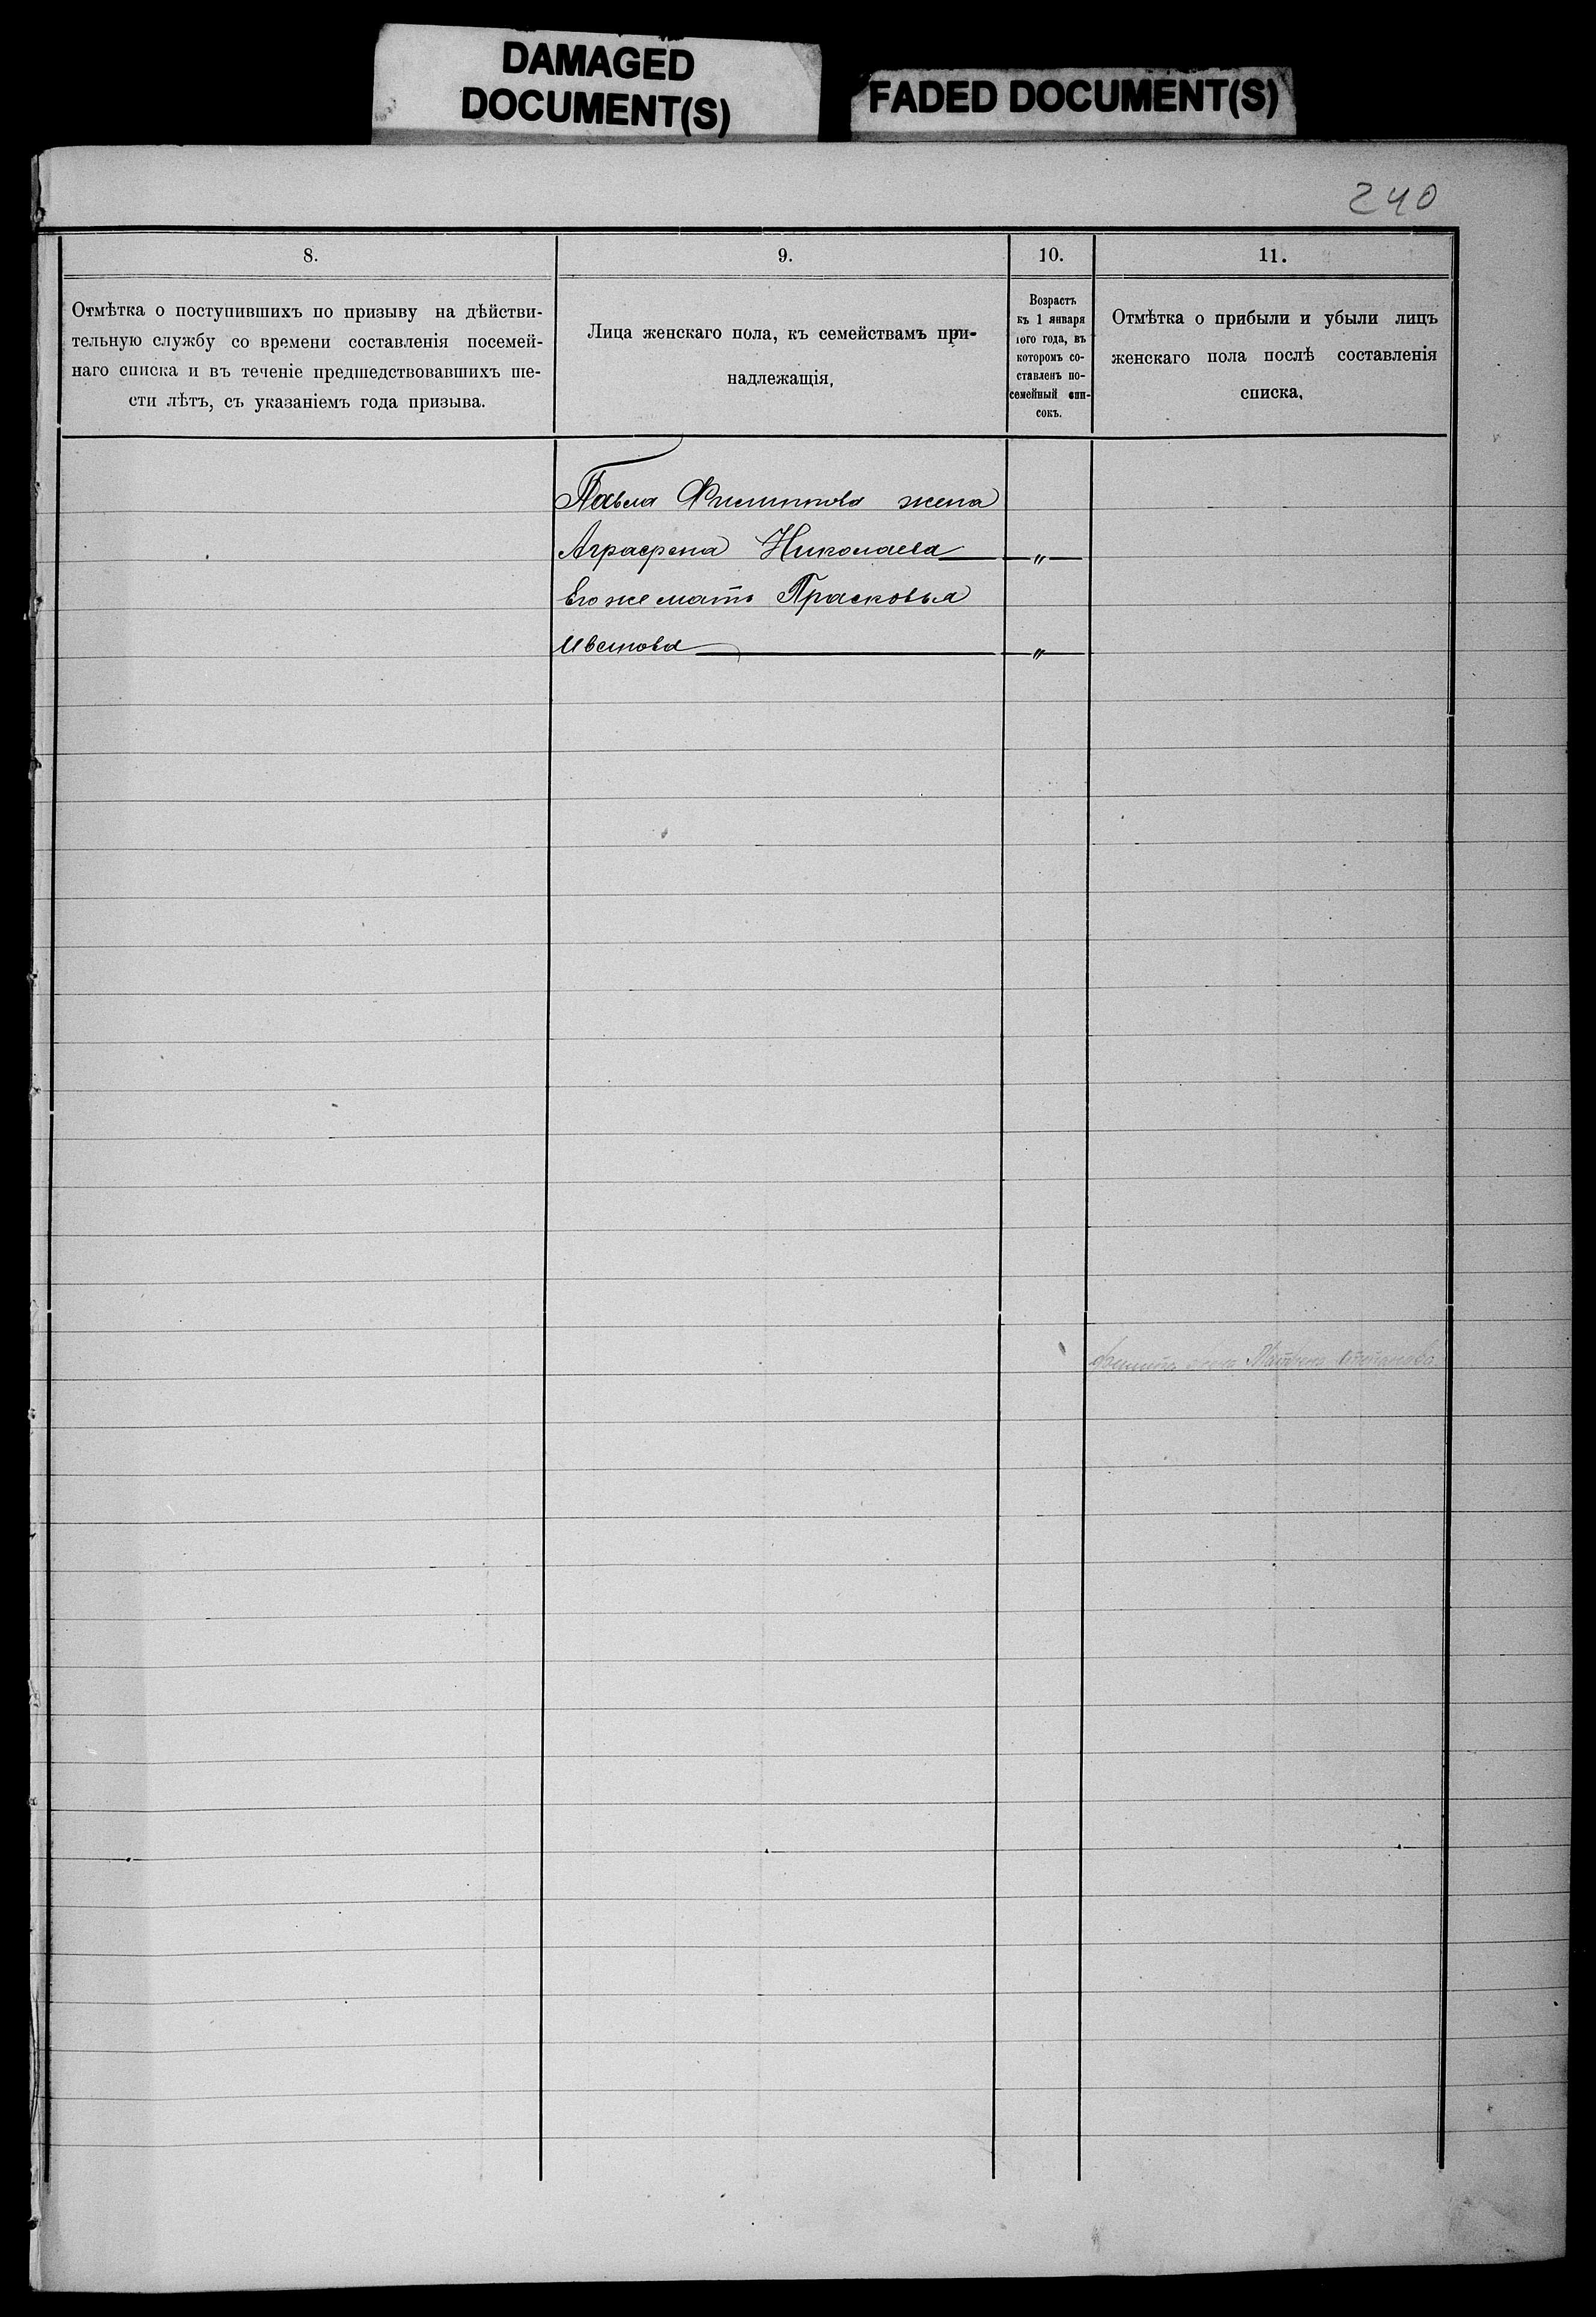 DAMAGED
DOCUMENT(S)
FADED DOCUMENT(S)
240
8.
9.
10.
11.
Отмѣтка о поступившихъ по призыву на дѣйстви-
тельную службу со времени составленія посемей-
наго списка и въ теченіе предшедствовавшихъ ше-
сти лѣтъ, съ указаніемъ года призыва.
Лица женскаго пола, къ семействамъ при-
надлежащія,
Возрастъ
къ 1 января
того года, въ
которомъ со-
ставленъ по-
семейный спи-
сокъ.
Отмѣтка о прибыли и убыли лицъ
женскаго пола послѣ составленія
списка.
Павла Филиппова жена
Аграфена Николаева — „ —
Его же мать Прасковья
Иванова — „ —